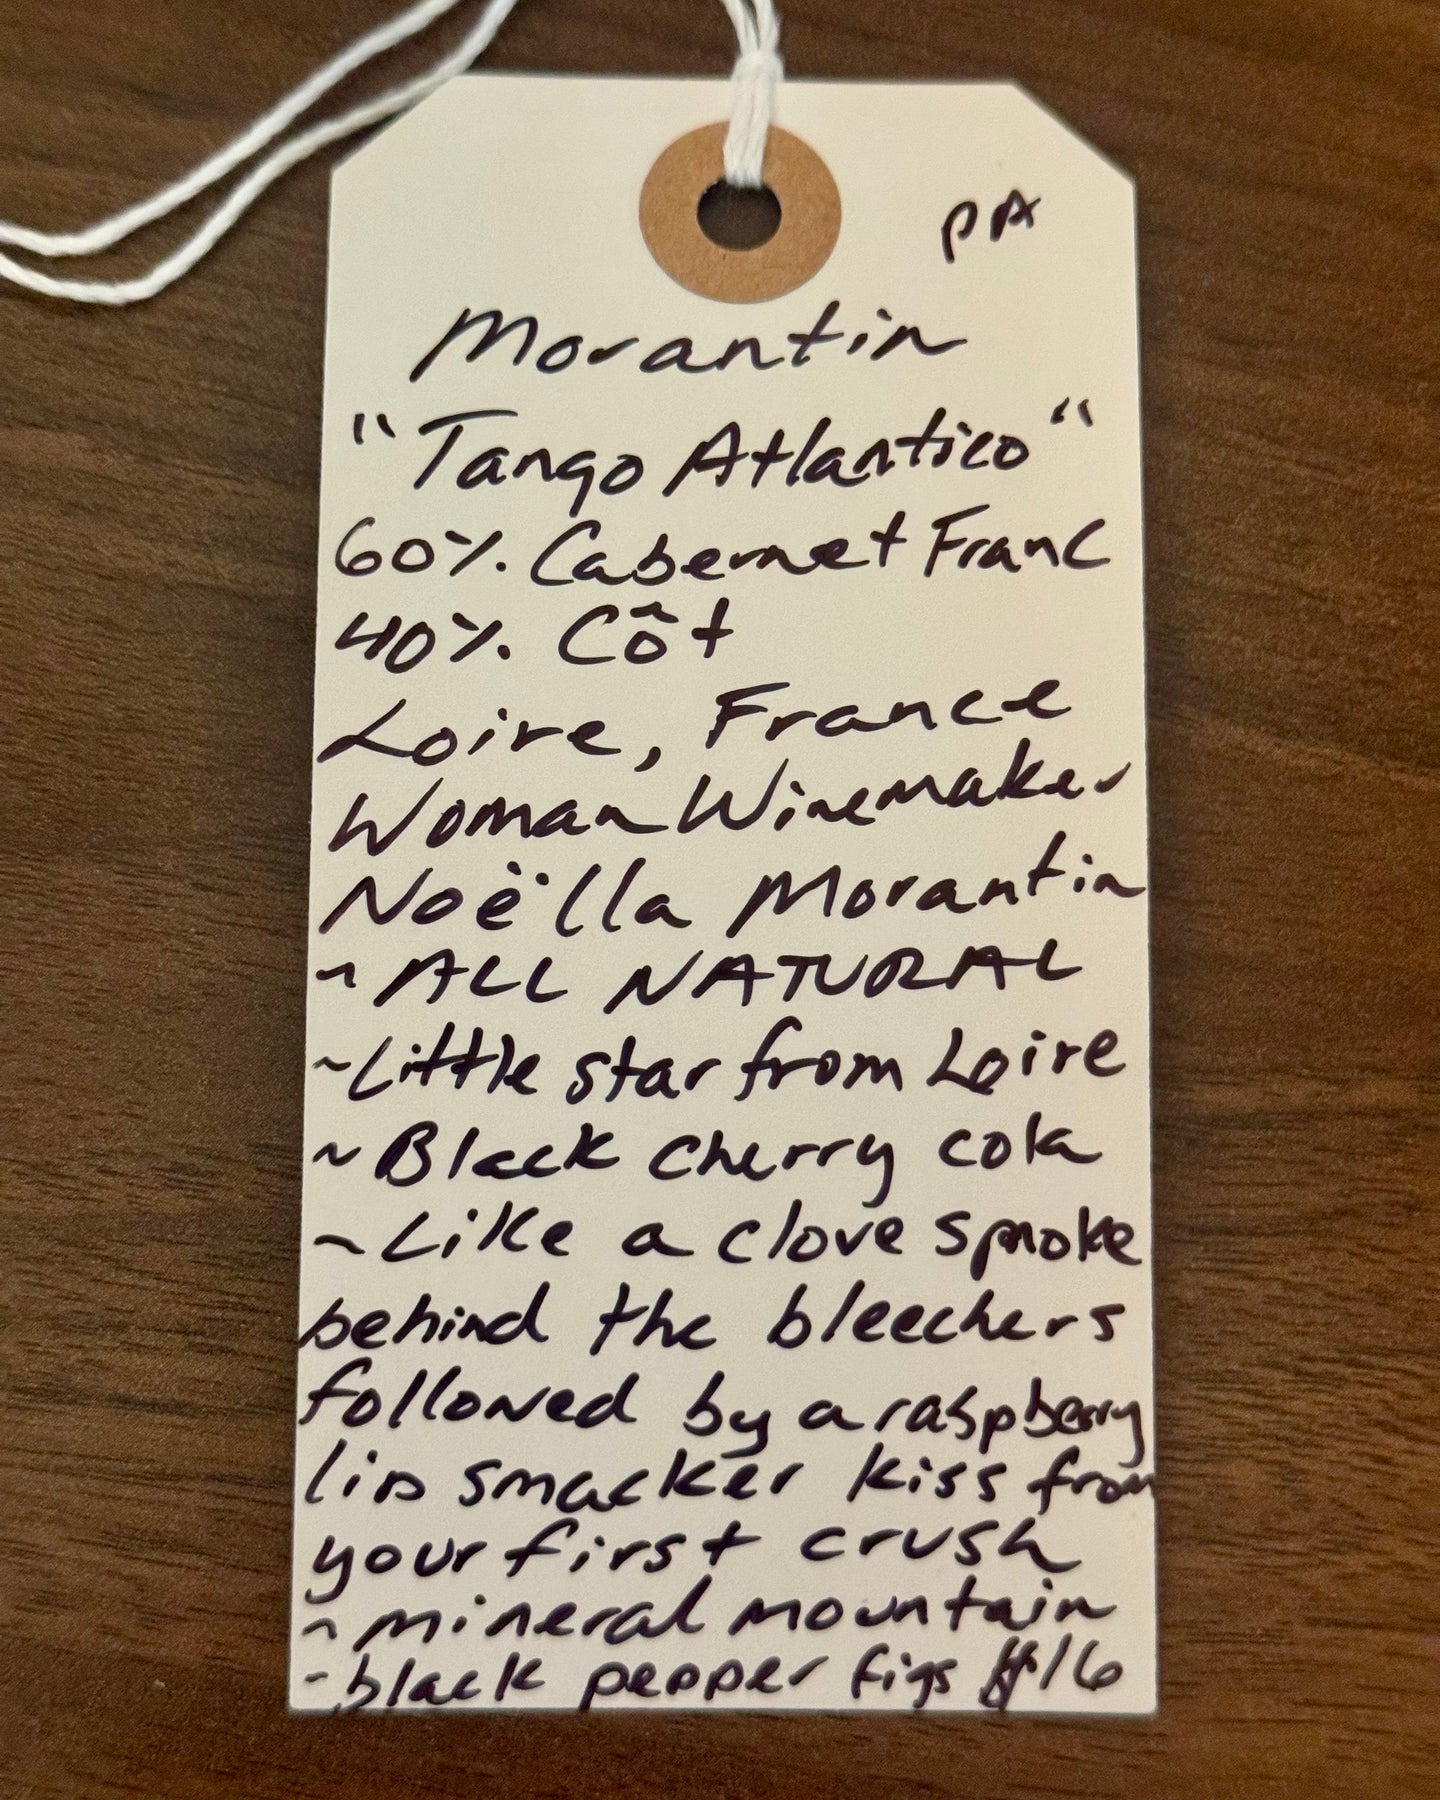 PA
Morantin
"Tango Atlantico"
60% Cabernet Franc
40% Côt
Loire, France
Woman Winemaker
Noëlla Morantin
~ ALL NATURAL
~Little star from Loire
~ Black cherry cola
~ Like a clove smoke
behind the bleechers
followed by a raspberry
lip smacker kiss from
your first crush
~ mineral mountain
~ black pepper figs #16